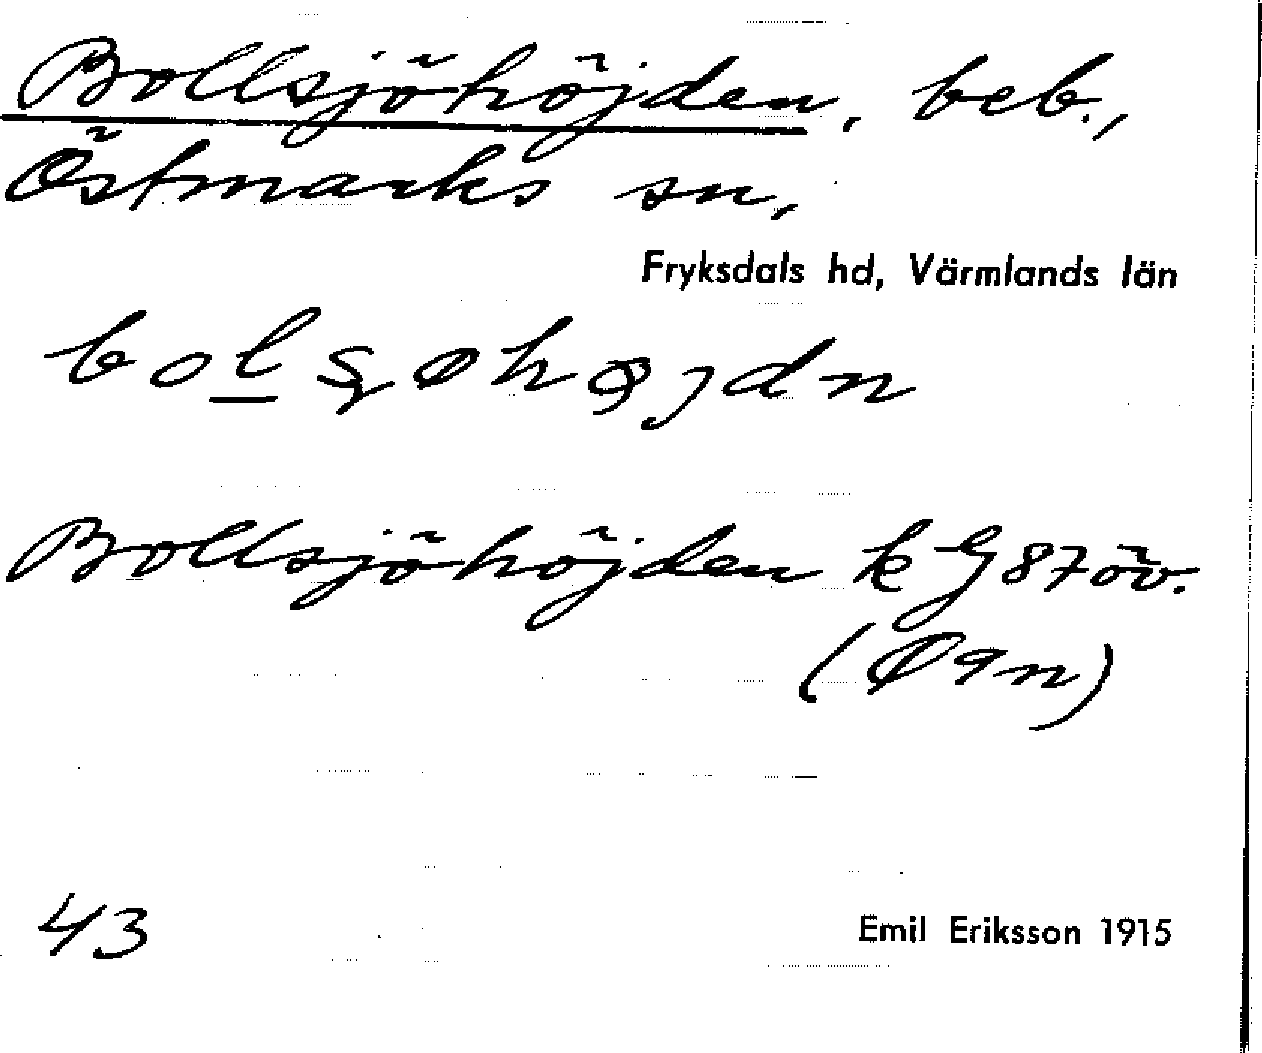 Bollsjöhöjden, beb.,
Östmarks sn,
Fryksdals hd, Värmlands län
Bollsjöhöjden k G 87 öv.
43
Emil Eriksson 1915